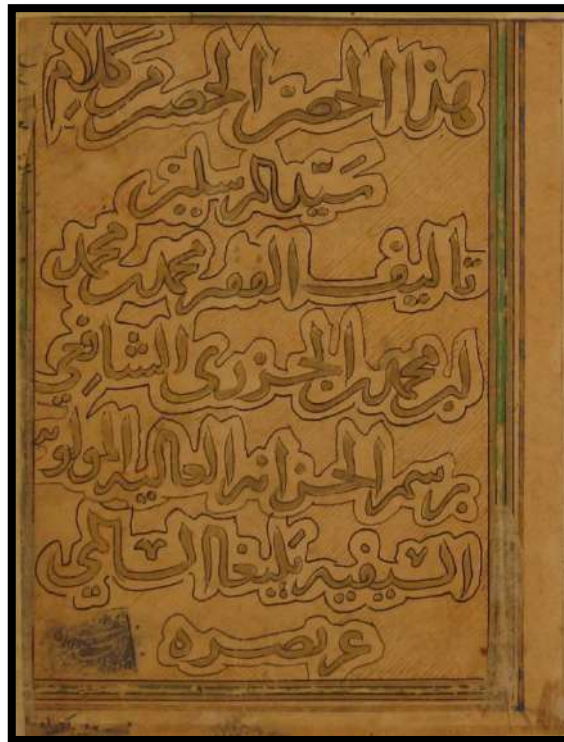 هذا الحصن الحصين من كلام
سيد المرسلين
تاليف الفقير محمد بن محمد
ابن محمد ابن الجزري الشافعي
برسم الخزانه العاليه المولويه
السيفيه يلبغا السالمي
عز نصره